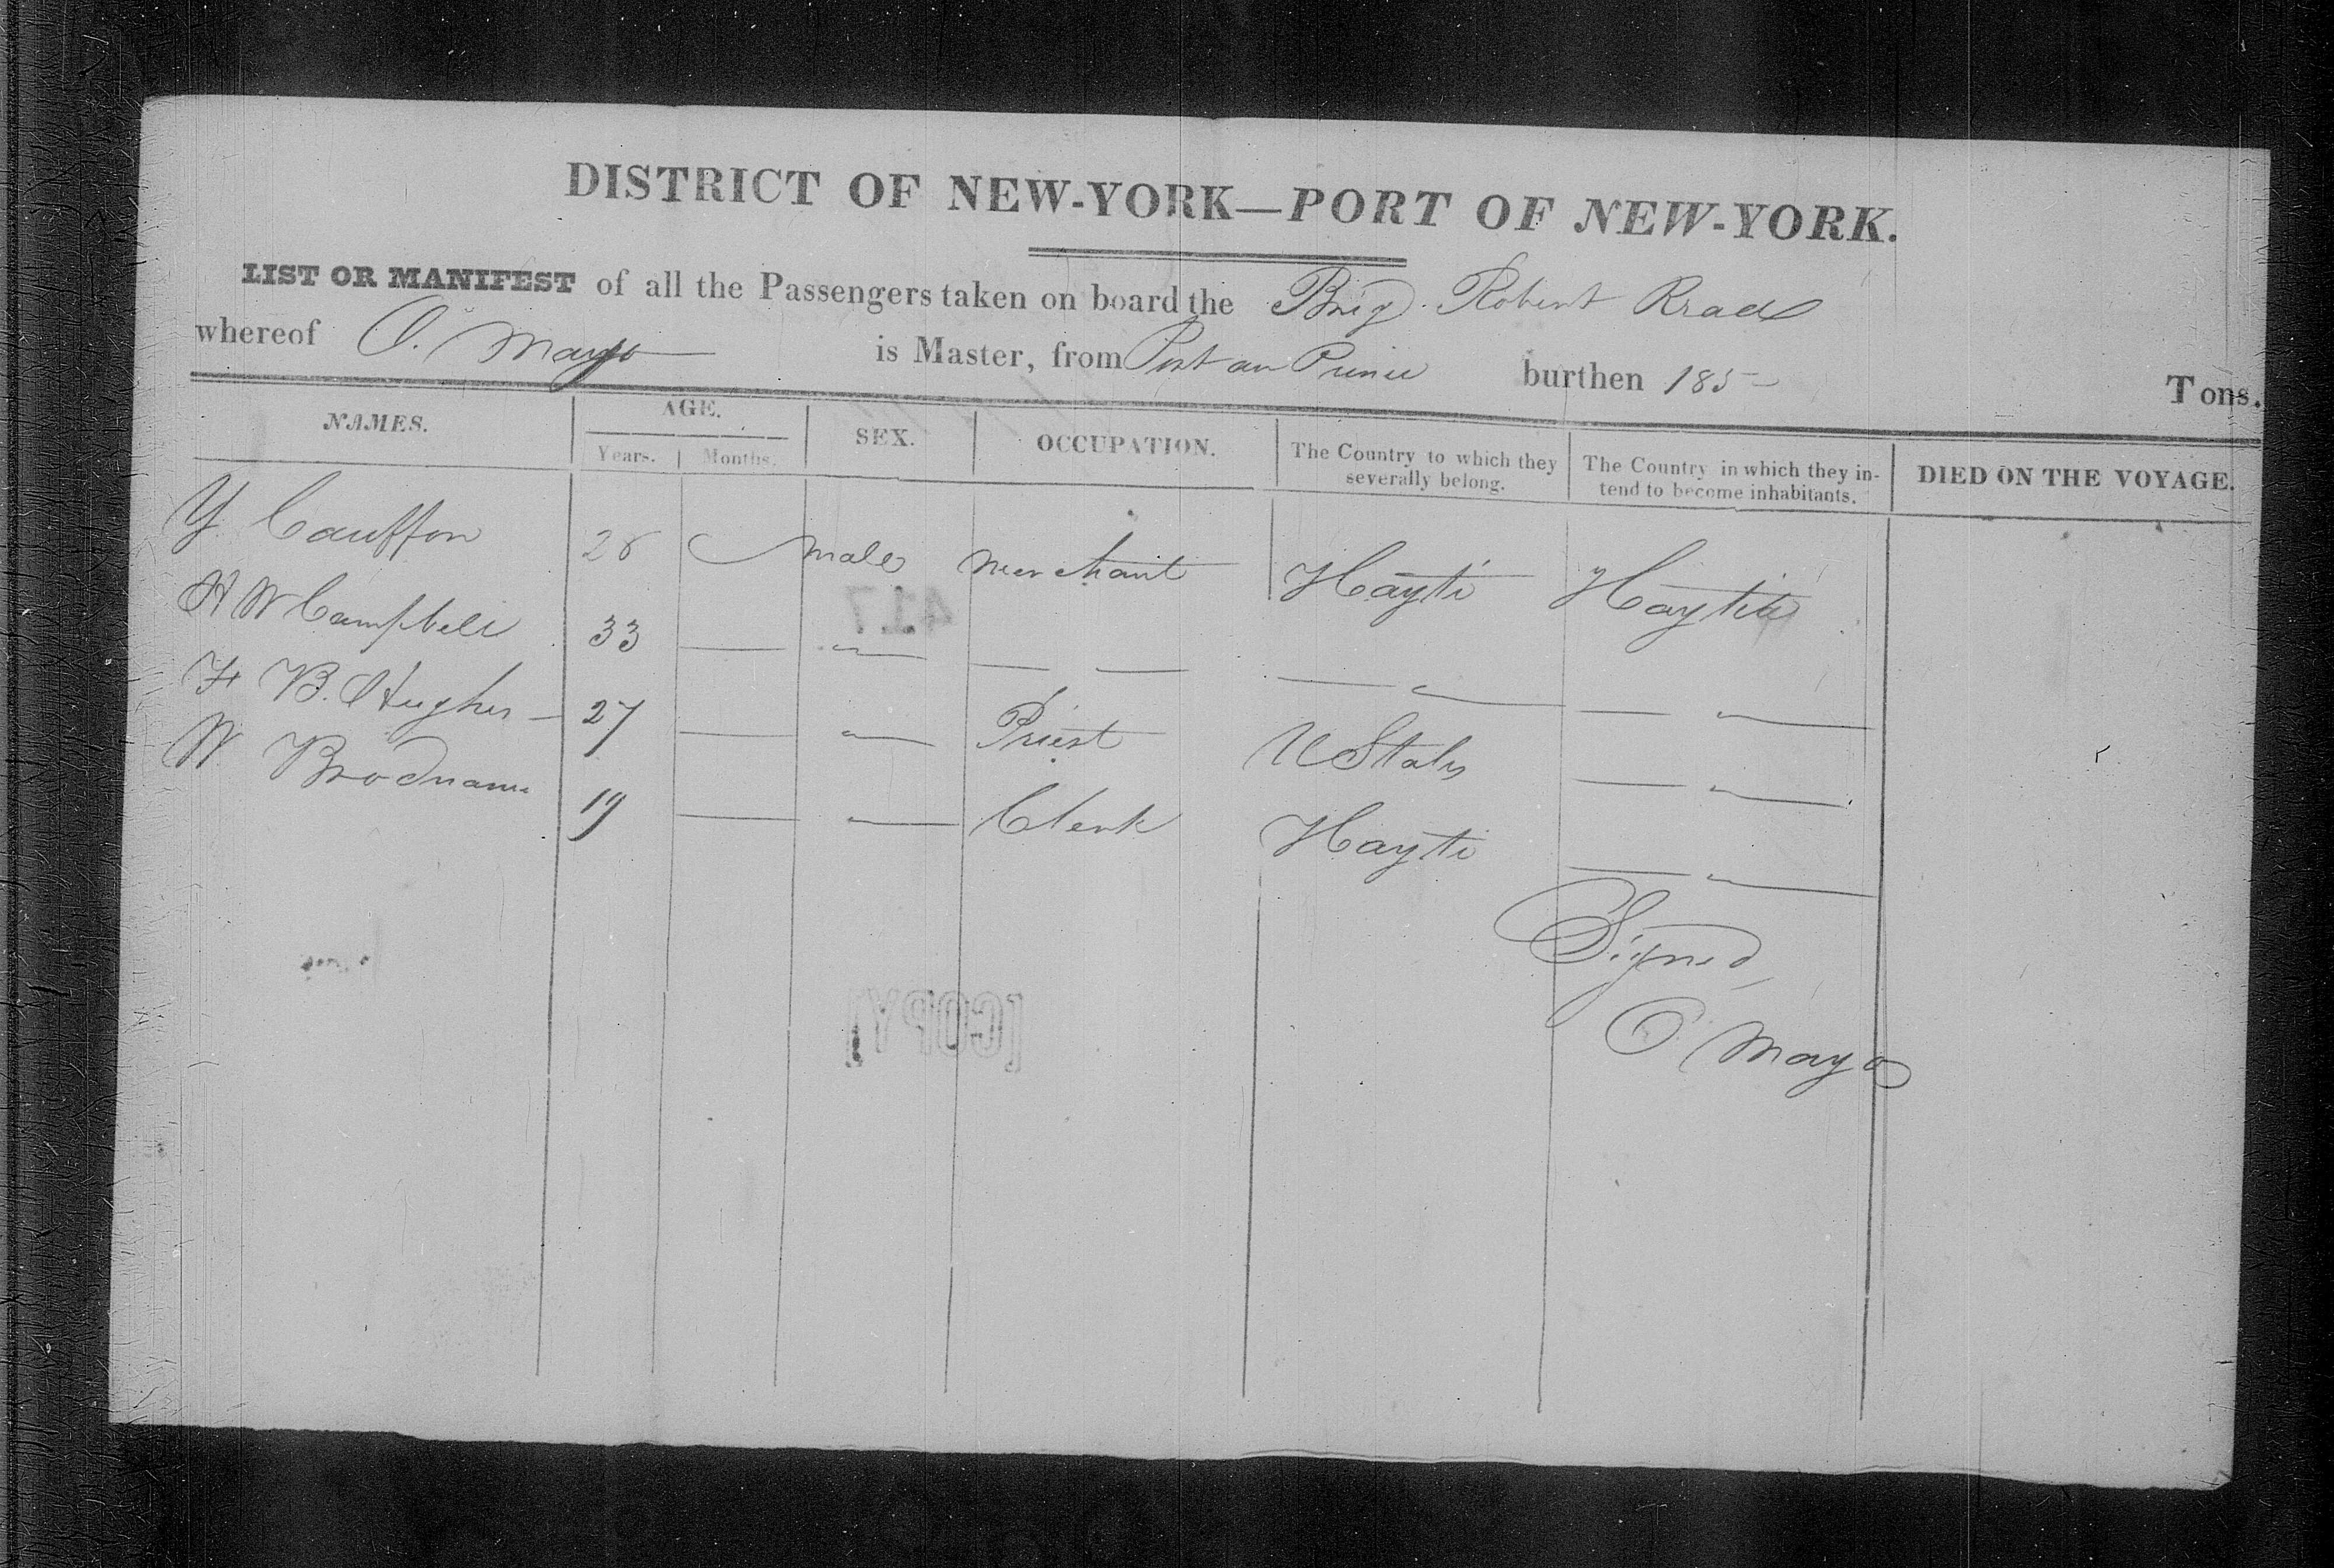 DISTRICT OF NEW-YORK—PORT OF NEW-YORK.
LIST OR MANIFEST of all the Passengers taken on board the Brig Robert Read
whereof O. Mayo is Master, from Port au Prince burthen 185 Tons.
NAMES. AGE. SEX. OCCUPATION. The Country to which they severally belong. The Country in which they intend to become inhabitants. DIED ON THE VOYAGE.
Years. Months.
Y Cauffon 26 male merchant Hayti Hayti
H W Campbell 33 — — — — — — — —
F B. Hughes — 27 — — Priest U States — —
W 19 — — Clerk Hayti — —
Signed
O Mayo
417
[COPY]